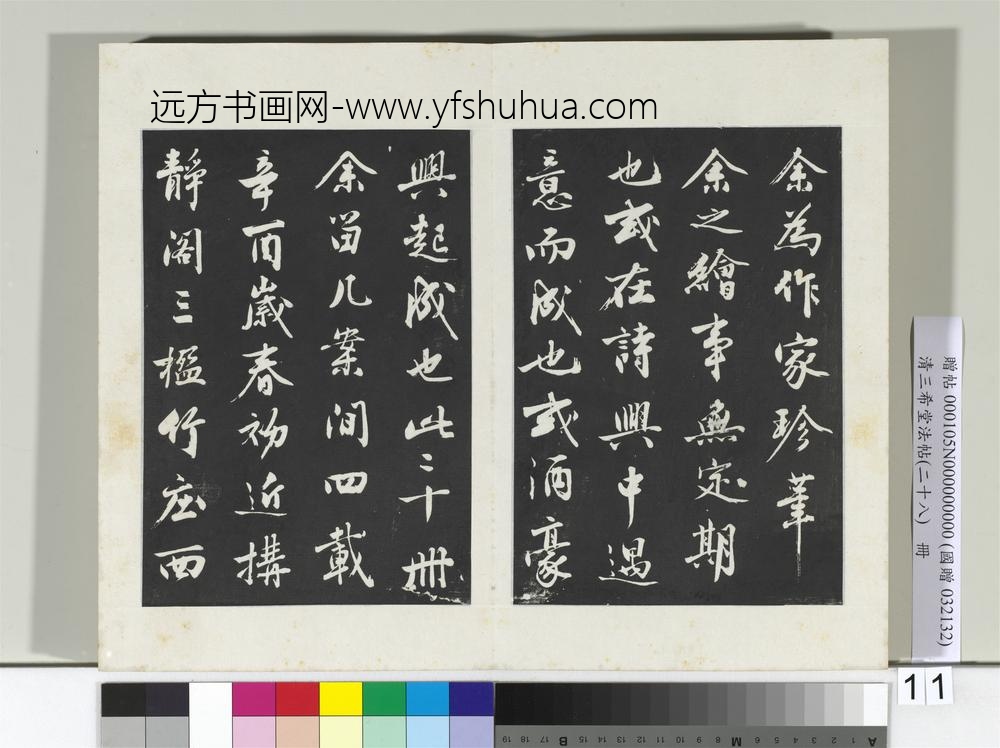 远方书画网-www.yfshuhua.com
余為作家珍華
余之繪事無定期
也或在詩興中遇
意而成也或酒豪
興起成也此二十冊
余留几案間四載
辛酉歲春初近搆
靜閣三楹竹庄西
贈帖 000105N000000000 (國贈 032132)
清三希堂法帖(二十八) 冊
11
A 1 2 3 4 5 6 M 8 9 10 11 12 13 14 15 B 17 18 19